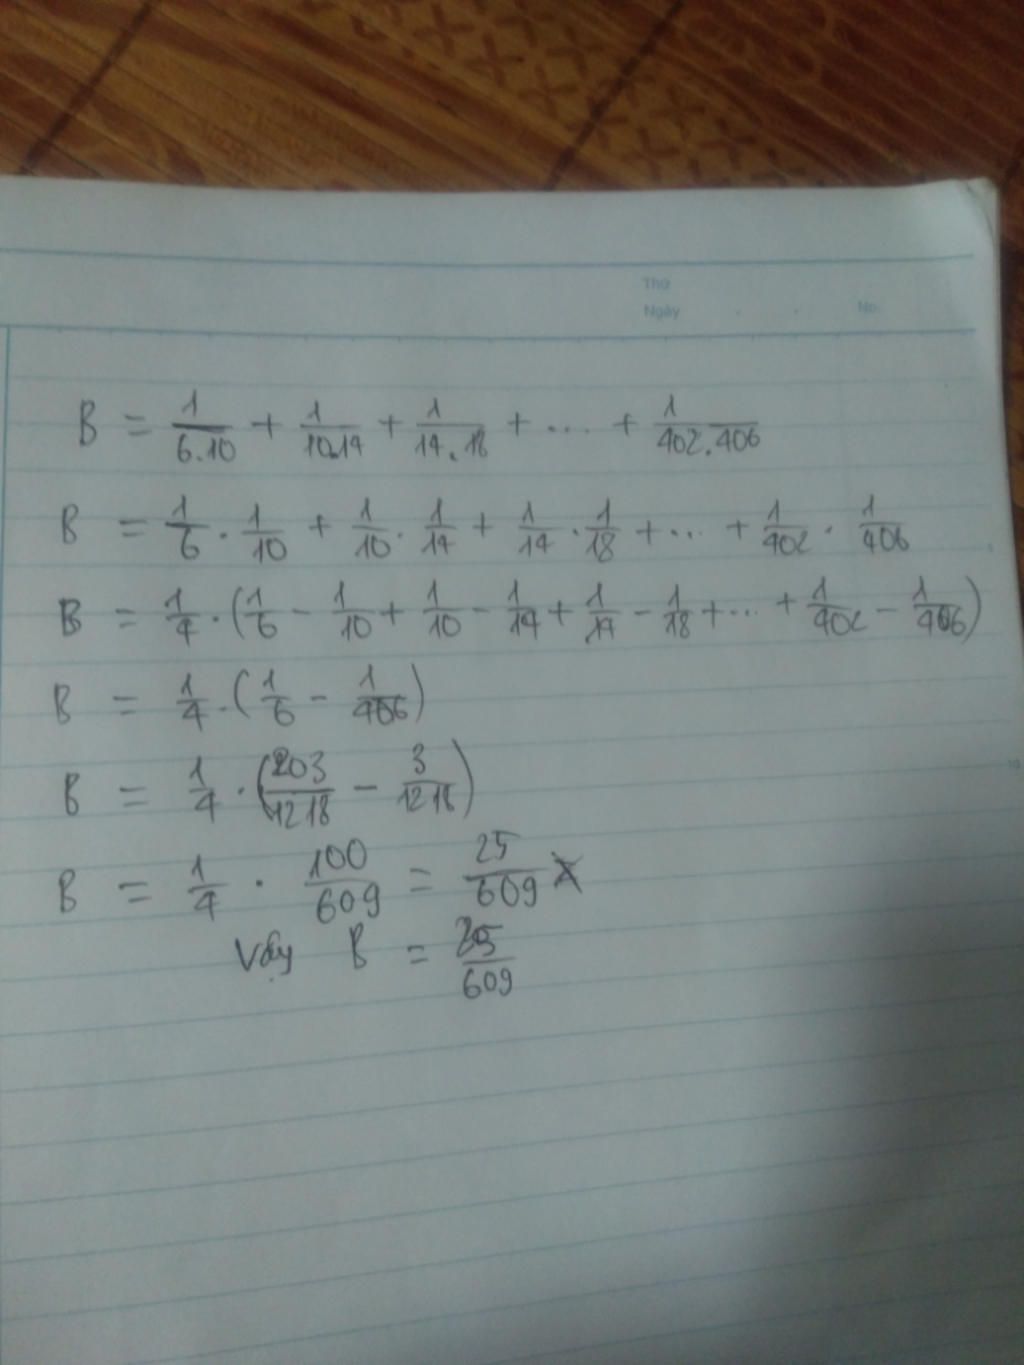 Thứ
Ngày . . No.
B = 1/6.10 + 1/10.14 + 1/14.18 + .... + 1/402.406
B = 1/6 . 1/10 + 1/10 . 1/14 + 1/14 . 1/18 + ... + 1/402 . 1/406
B = 1/4 . (1/6 - 1/10 + 1/10 - 1/14 + 1/14 - 1/18 + ... + 1/402 - 1/406)
B = 1/4 . (1/6 - 1/406)
B = 1/4 . (203/1218 - 3/1218)
B = 1/4 . 100/609 = 25/609
Vậy B = 25/609